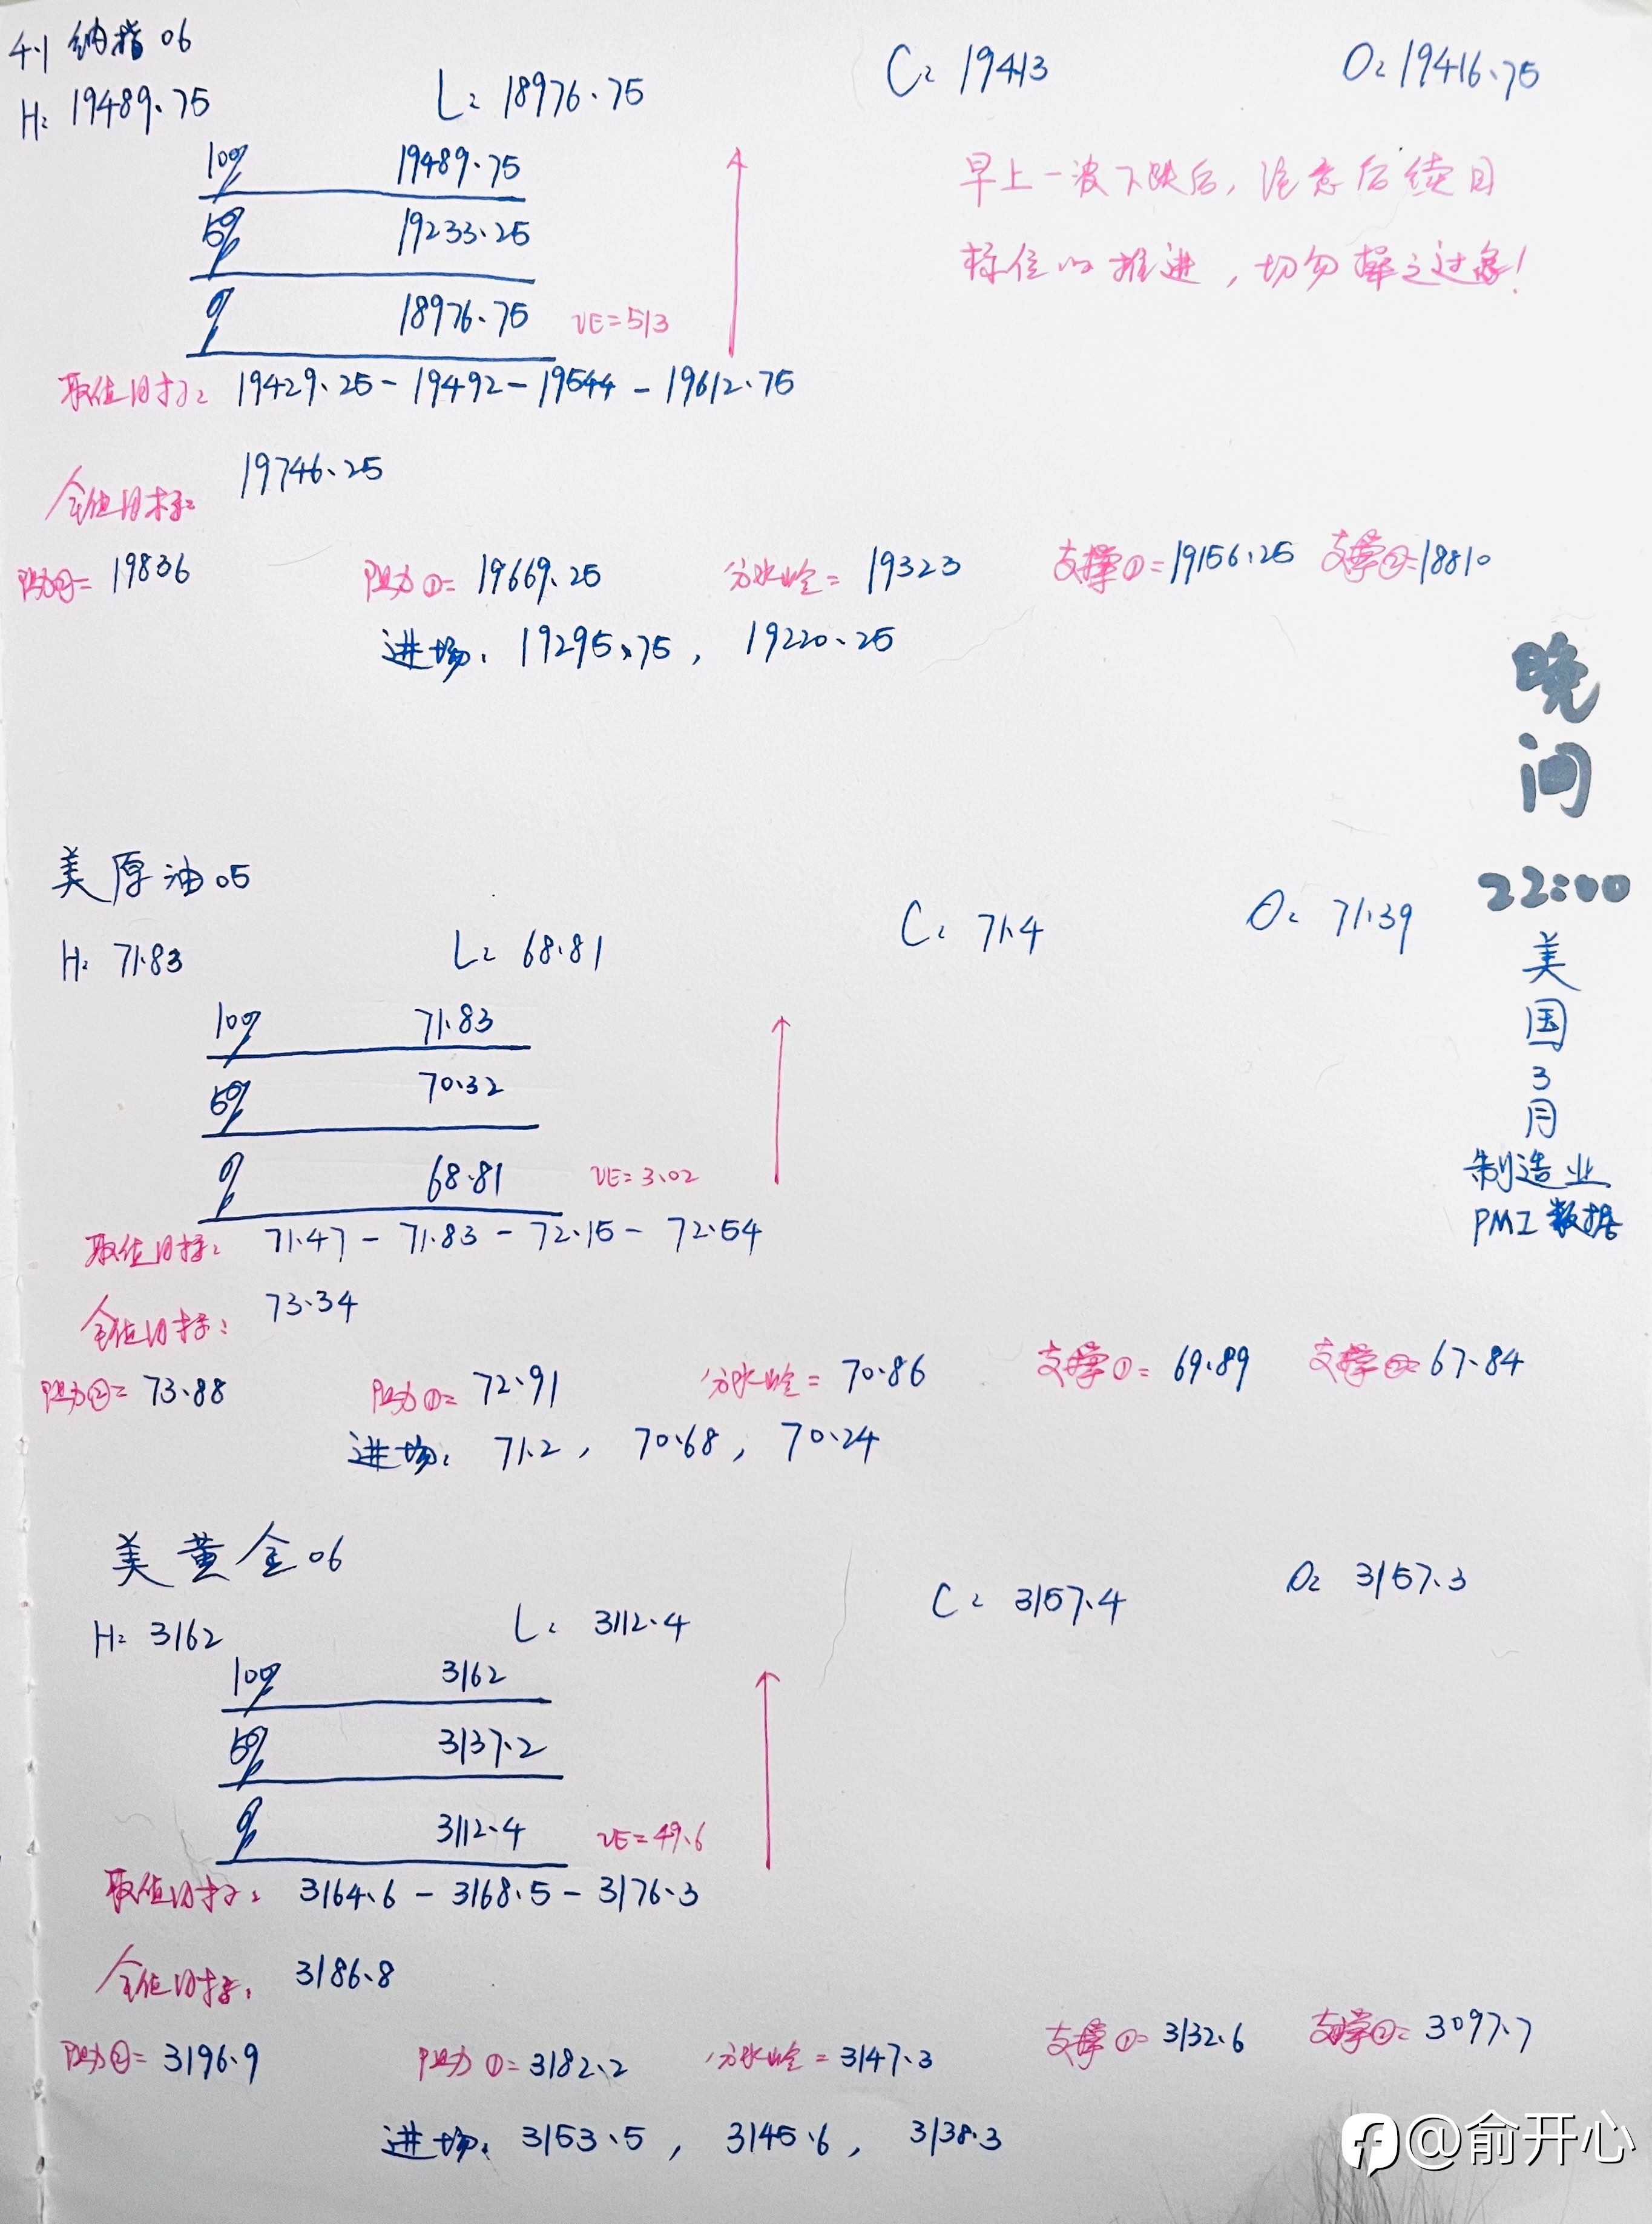 4.1 纳指06
H: 19489.75 L: 18976.75 C: 19413 O: 19416.75
100% 19489.75
50% 19233.25
0% 18976.75 VE=513
早上一波下跌后,注意后续目
标位的推进,切勿操之过急!
取值目标: 19429.25-19492-19544-19612.75
全值目标: 19746.25
阻力②=19836 阻力①=19669.25 分水岭=19323 支撑①=19156.25 支撑②=18810
进场: 19295.75, 19220.25
晚
间
22:00
美
国
3
月
制造业
PMI数据
美原油05
H: 71.83 L: 68.81 C: 71.4 O: 71.39
100% 71.83
50% 70.32
0% 68.81 VE=3.02
取值目标: 71.47-71.83-72.15-72.54
全值目标: 73.34
阻力②=73.88 阻力①=72.91 分水岭=70.86 支撑①=69.89 支撑②=67.84
进场: 71.2, 70.68, 70.24
美黄金06
H: 3162 L: 3112.4 C: 3157.4 O: 3157.3
100% 3162
50% 3137.2
0% 3112.4 VE=49.6
取值目标: 3164.6-3168.5-3176.3
全值目标: 3186.8
阻力②=3196.9 阻力①=3182.2 分水岭=3147.3 支撑①=3132.6 支撑②=3097.7
进场: 3153.5, 3145.6, 3138.3
@俞开心